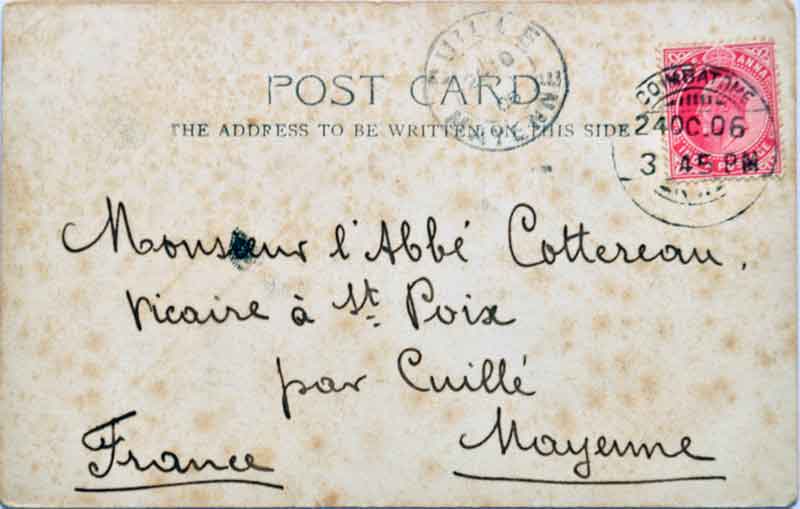 POST CARD
THE ADDRESS TO BE WRITTEN ON THIS SIDE
CUILLÉ
MAYENNE
ANNA
COIMBATORE
24 OC. 06
3 45 PM
Monsieur l'Abbé Cottereau,
Vicaire à St. Poix
par Cuillé
France
Mayenne